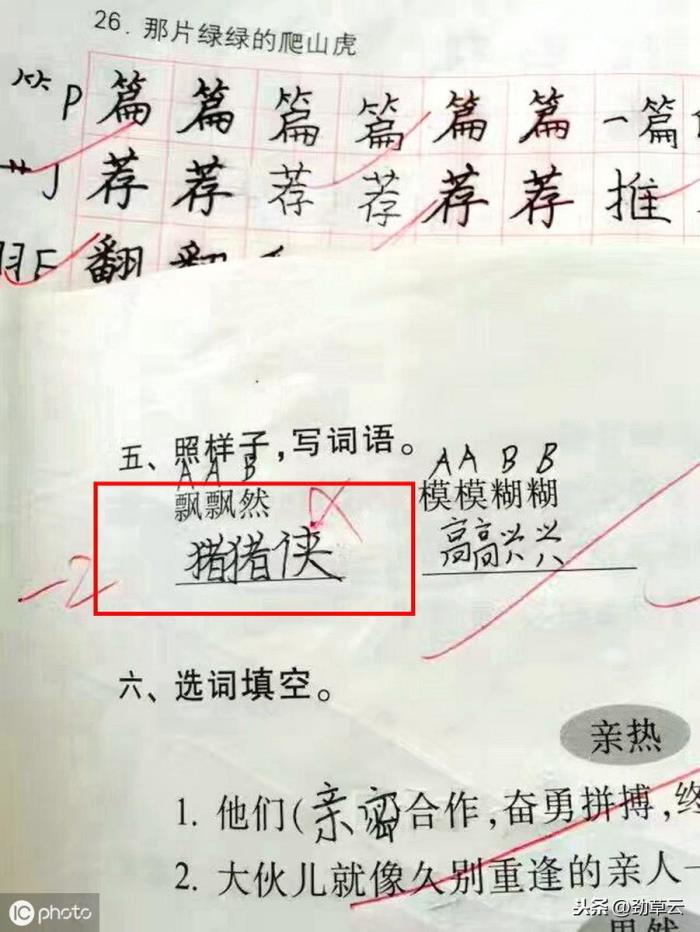 26. 那片绿绿的爬山虎
P 篇 篇 篇 篇 篇 篇 一篇
J 荐 荐 荐 荐 荐 荐 推
羽F 翻 翻
五、照样子，写词语。
A A B A A B B
飘飘然 模模糊糊
猪猪侠 高高兴兴
-2
六、选词填空。
亲热
1. 他们(亲密)合作，奋勇拼搏，终
2. 大伙儿就像久别重逢的亲人一
IC photo 头条@劲草云